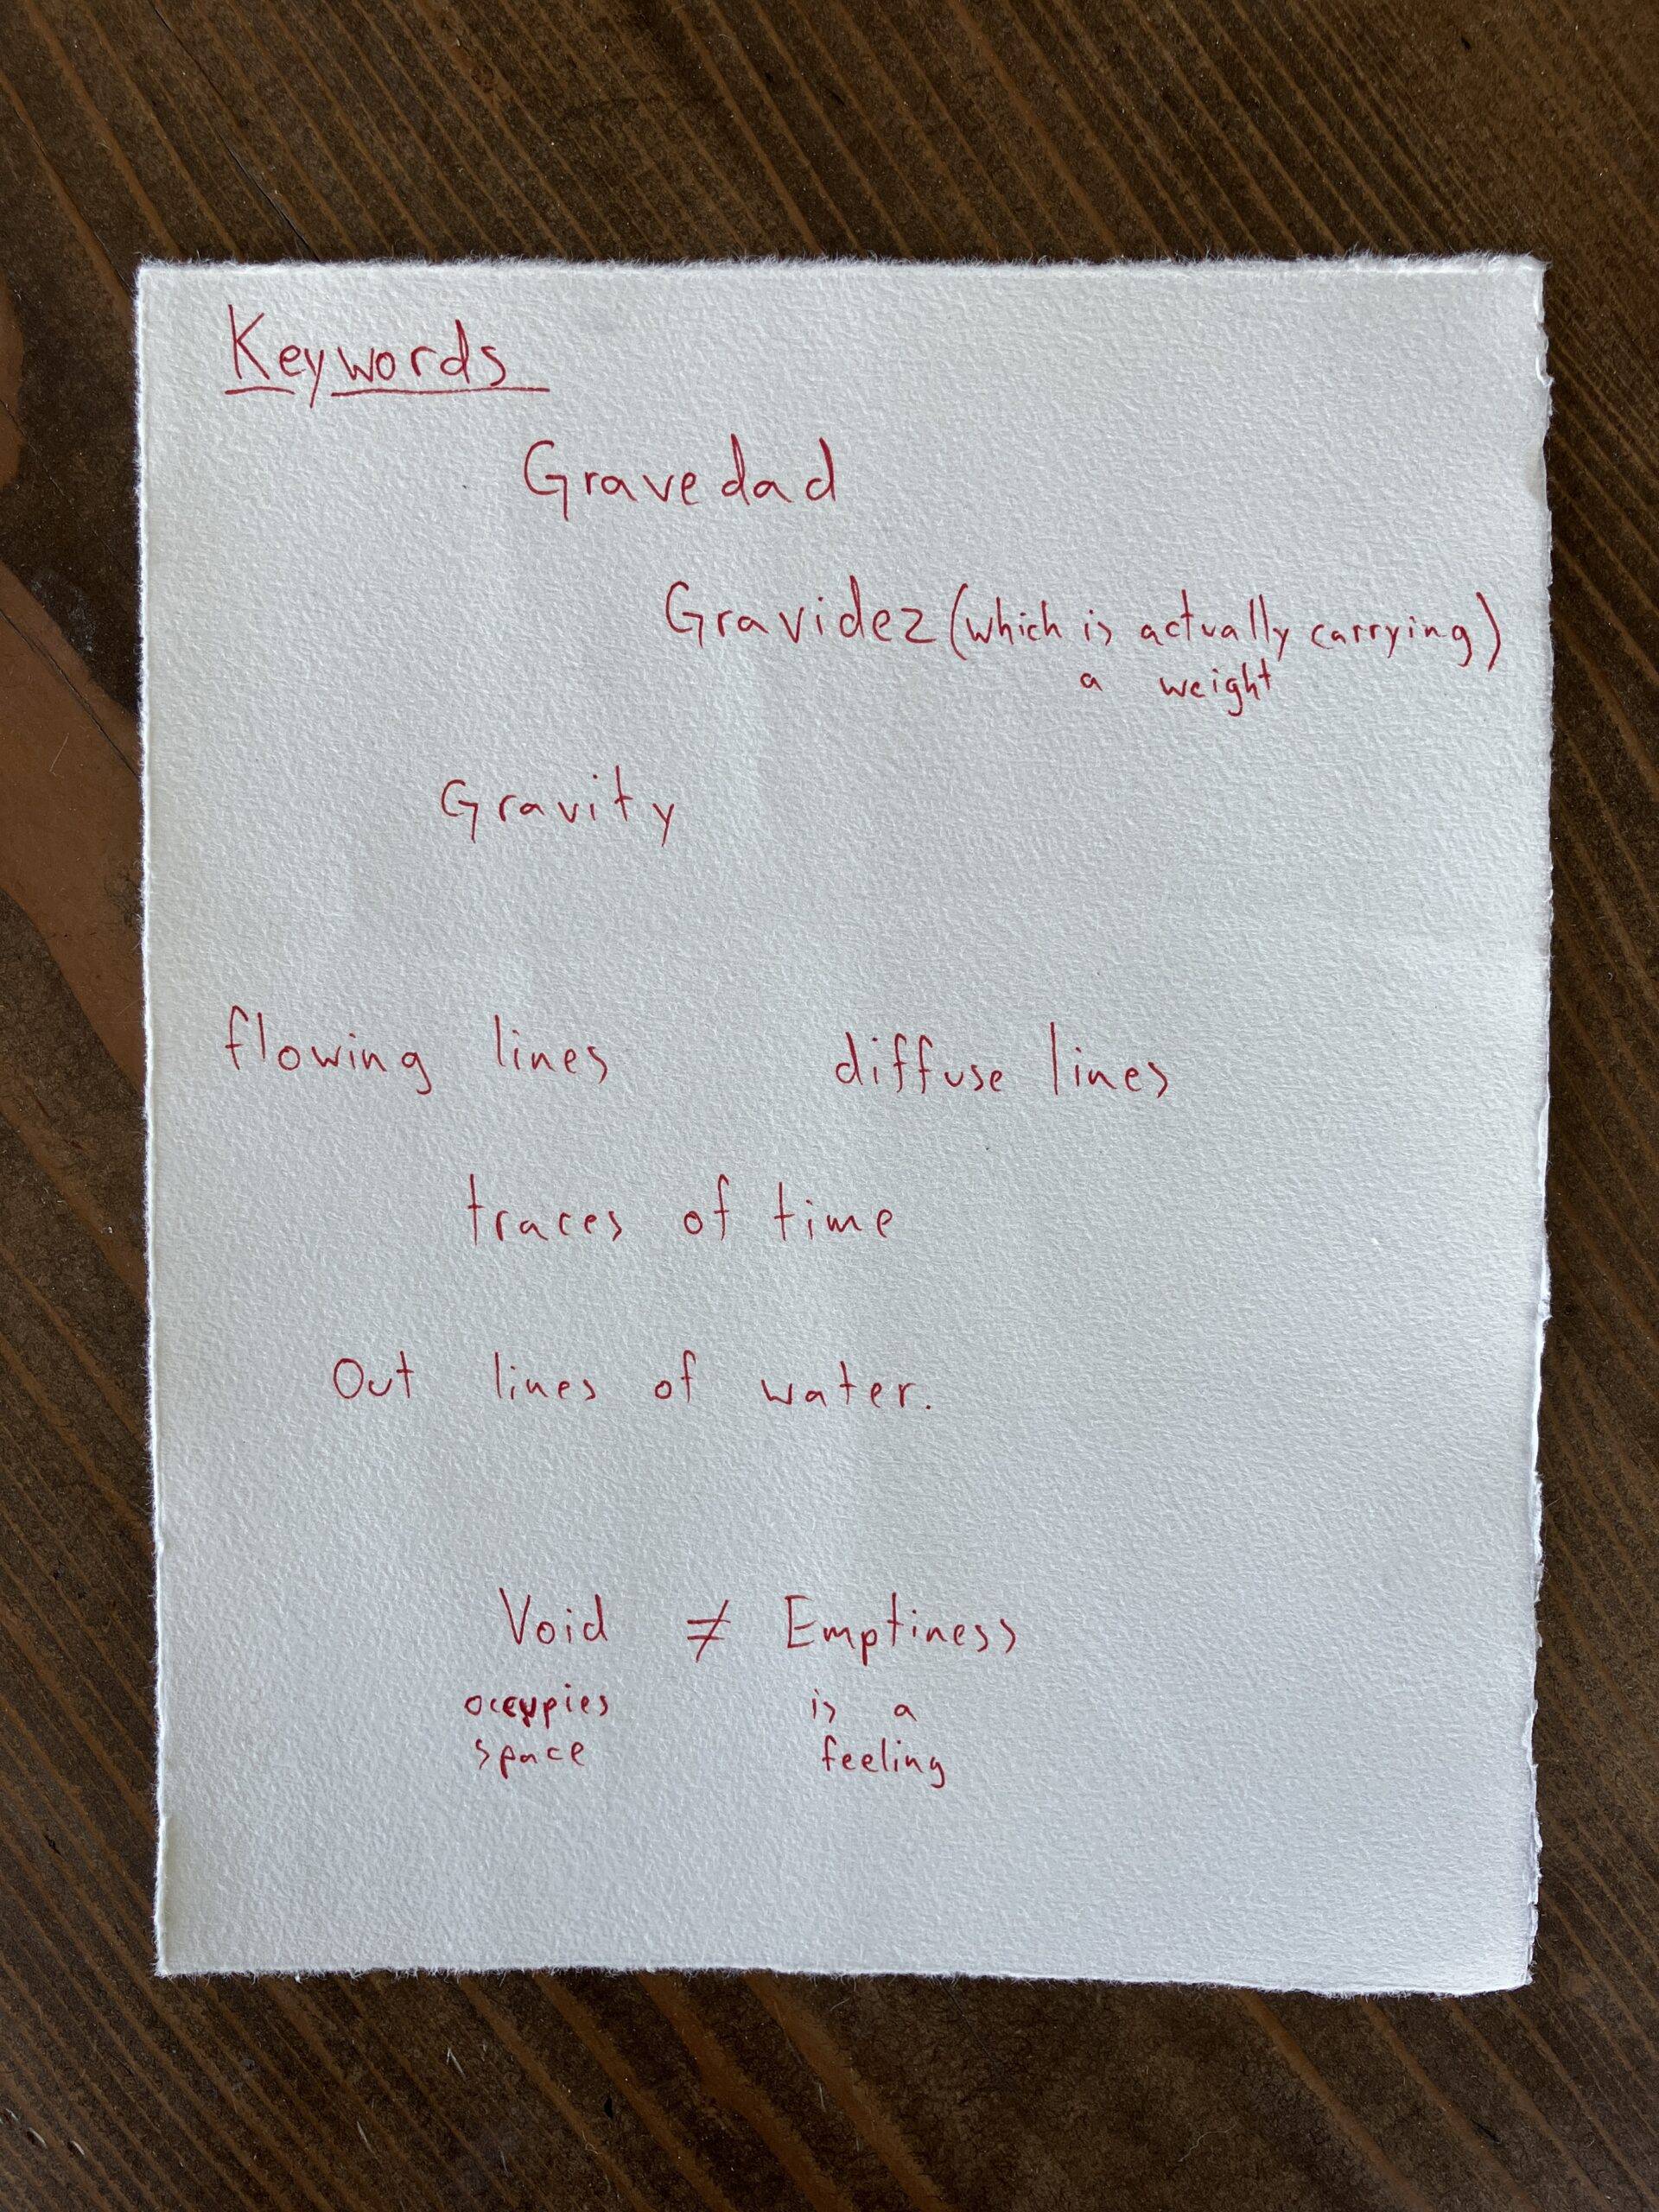 Keywords
Gravedad
Gravidez (which is actually carrying)
a weight
Gravity
flowing lines diffuse lines
traces of time
Out lines of water.
Void ≠ Emptiness
occupies is a
space feeling